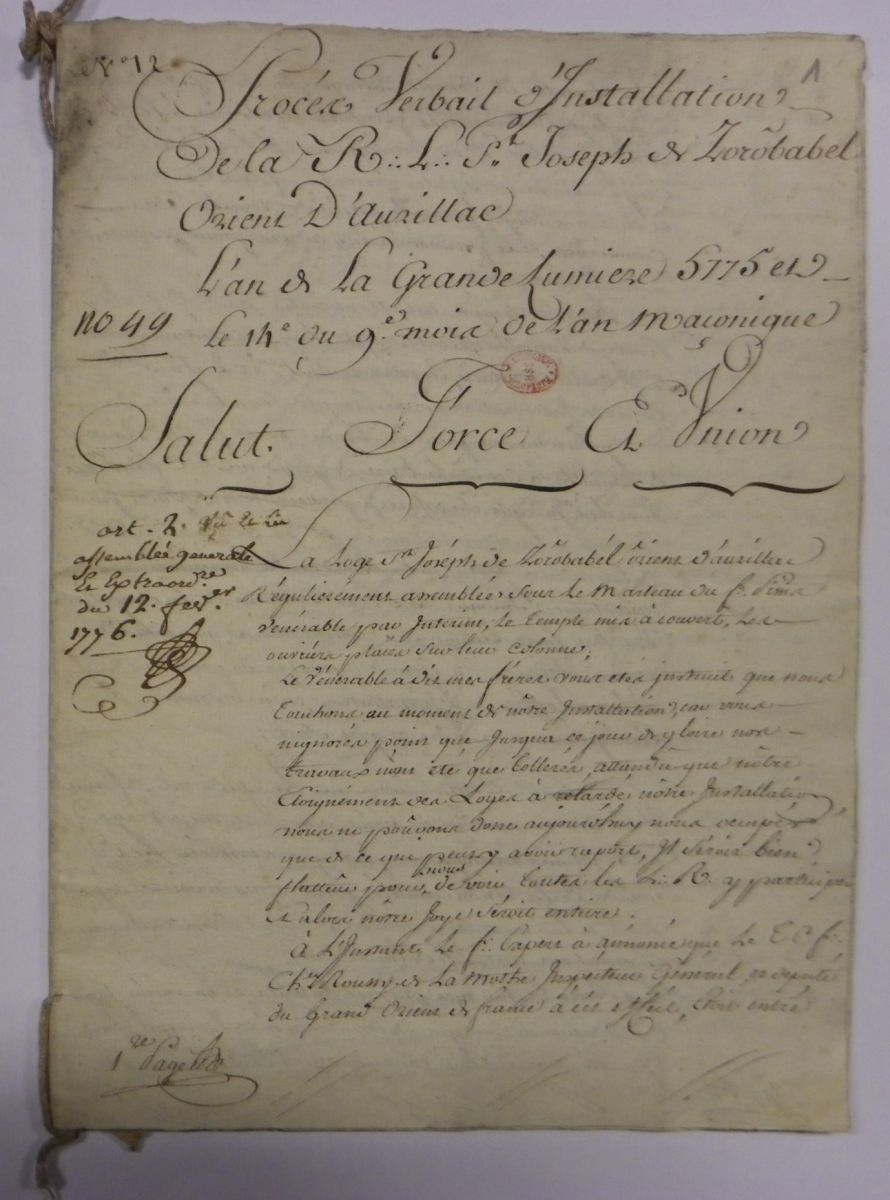 N° 12
1
Procés Verbail d'Installation
De la R∴ L∴ St Joseph de Zorobabel
Orient D'Aurillac
L'an de La Grande Lumiere 5775 et
no 49
Le 14e du 9e mois de L'an Maçonique
Salut. Force Et Union
art. 2. Vu
assemblée generale
Et Extraordre
du 12. fevr.
1776.
La Loge St Joséph de Zorobabél orient d'aurillac
Régulierément assemblée sous le Marteau du f∴
Vénérable par Interim, Le Temple mis à couvert, Les
ouvriers placés sur leur colonne,
Le Vénérable à dit mes fréres vous etes instruit que nous
Touchons au moment de nôtre Installation, car vous
nignorés point que Jusqua ce jour de gloire nos
travaux nont eté que attendu que nôtre
Eloignément des Loges à retardé nôtre Installation
nous ne poûvons donc aujourdhuy nous occuper
que de ce qui peut y avoir raport, Il séroit bien
flatteur pour nous de voir toutes les L∴ R∴ y participer
et alors nôtre Joye séroit entiere.
à L'Instant Le f∴ à annoncé que Le T C f∴
Cher Roussy de La Mothe Inspecteur Général, et deputé
du Grand Orient de france à cét effét, étoit entré
1re Page